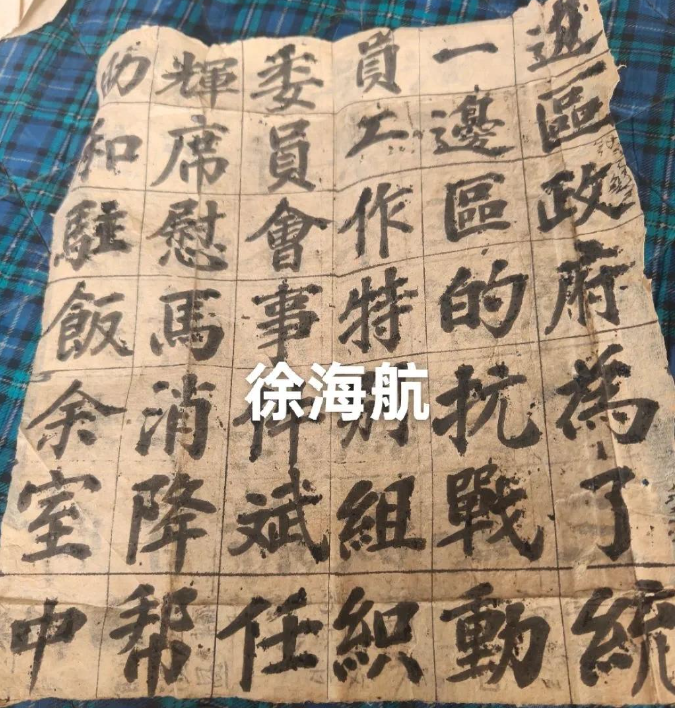 區政府為了統
一邊區的抗戰動
員工作特別組織
委員會事件斌任
輝席慰馬消降帮
助和駐飯余室中
徐海航